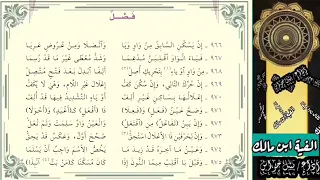 فَصْلٌ
٩٦٦ - إِنْ يَسْكُنِ السَّابِقُ مِنْ وَاوٍ وَيَا وَاتَّصَلَا وَمِنْ عُرُوضٍ عَرِيَا
٩٦٧ - فَيَاءً الْوَاوَ اقْلِبَنَّ مُدْغِمَا وَشَذَّ مُعْطًى غَيْرَ مَا قَدْ رُسِمَا
٩٦٨ - مِنْ وَاوٍ أَوْ يَاءٍ بِتَحْرِيكٍ أُصِلْ أَلِفًا ابْدِلْ بَعْدَ فَتْحٍ مُتَّصِلْ
٩٦٩ - إِنْ حُرِّكَ التَّالِي، وَإِنْ سُكِّنَ كَفّ إِعْلَالَ غَيْرِ اللَّامِ، وَهْيَ لَا يُكَفّ
٩٧٠ - إِعْلَالُهَا بِسَاكِنٍ غَيْرِ أَلِفْ أَوْ يَاءٍ التَّشْدِيدُ فِيهَا قَدْ أُلِفْ
٩٧١ - وَصَحَّ عَيْنُ (فَعَلٍ) وَ(فَعِلَا) ذَا (أَفْعَلٍ) كَـ(أَغْيَدٍ) وَ(أَحْوَلَا)
٩٧٢ - وَإِنْ يَبِنْ (تَفَاعُلٌ) مِنِ (افْتَعَلْ) وَالْعَيْنُ وَاوٌ سَلِمَتْ وَلَمْ تُعَلّ
٩٧٣ - وَإِنْ لِحَرْفَيْنِ ذَا الْاِعْلَالُ اسْتُحِقّ صُحِّحَ أَوَّلٌ، وَعَكْسٌ قَدْ يَحِقّ
٩٧٤ - وَعَيْنُ مَا آخِرَهُ قَدْ زِيدَ مَا يَخُصُّ الِاسْمَ وَاجِبٌ أَنْ يَسْلَمَا
٩٧٥ - وَقَبْلَ بَا اقْلِبْ مِيمًا النُّونَ إِذَا كَانَ مُسَكَّنًا كَـ(مَنْ بَتَّ انْبِذَا)
الفية ابن مالك